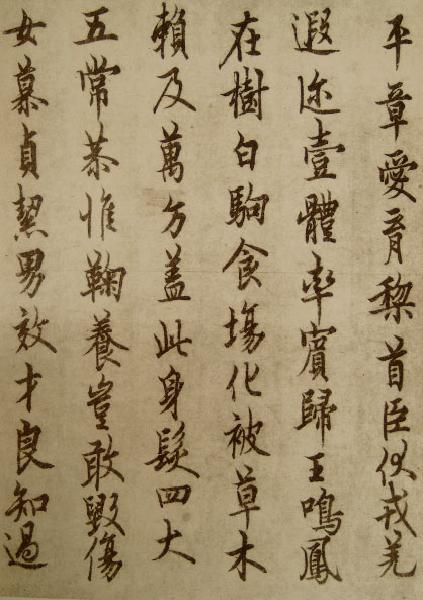 平章愛育黎首臣伏戎羌
遐迩壹體率賓歸王鳴鳳
在樹白駒食場化被草木
賴及萬方蓋此身髮四大
五常恭惟鞠養豈敢毀傷
女慕貞絜男效才良知過